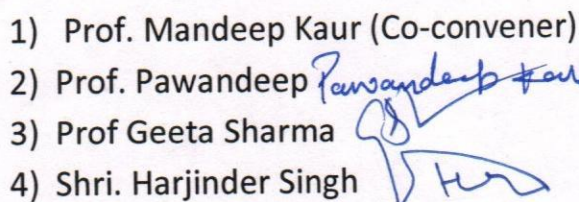 1) Prof. Mandeep Kaur (Co-convener)
2) Prof. Pawandeep Pawandeep Kaur
3) Prof Geeta Sharma
4) Shri. Harjinder Singh